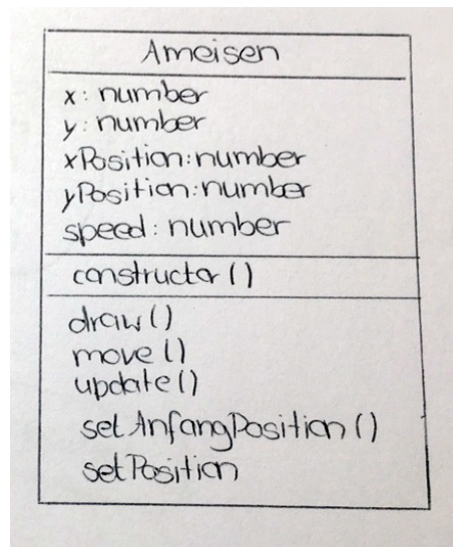 Ameisen
x: number
y: number
xPosition:number
yPosition:number
speed: number
constructor()
draw()
move()
update()
setAnfangPosition()
setPosition